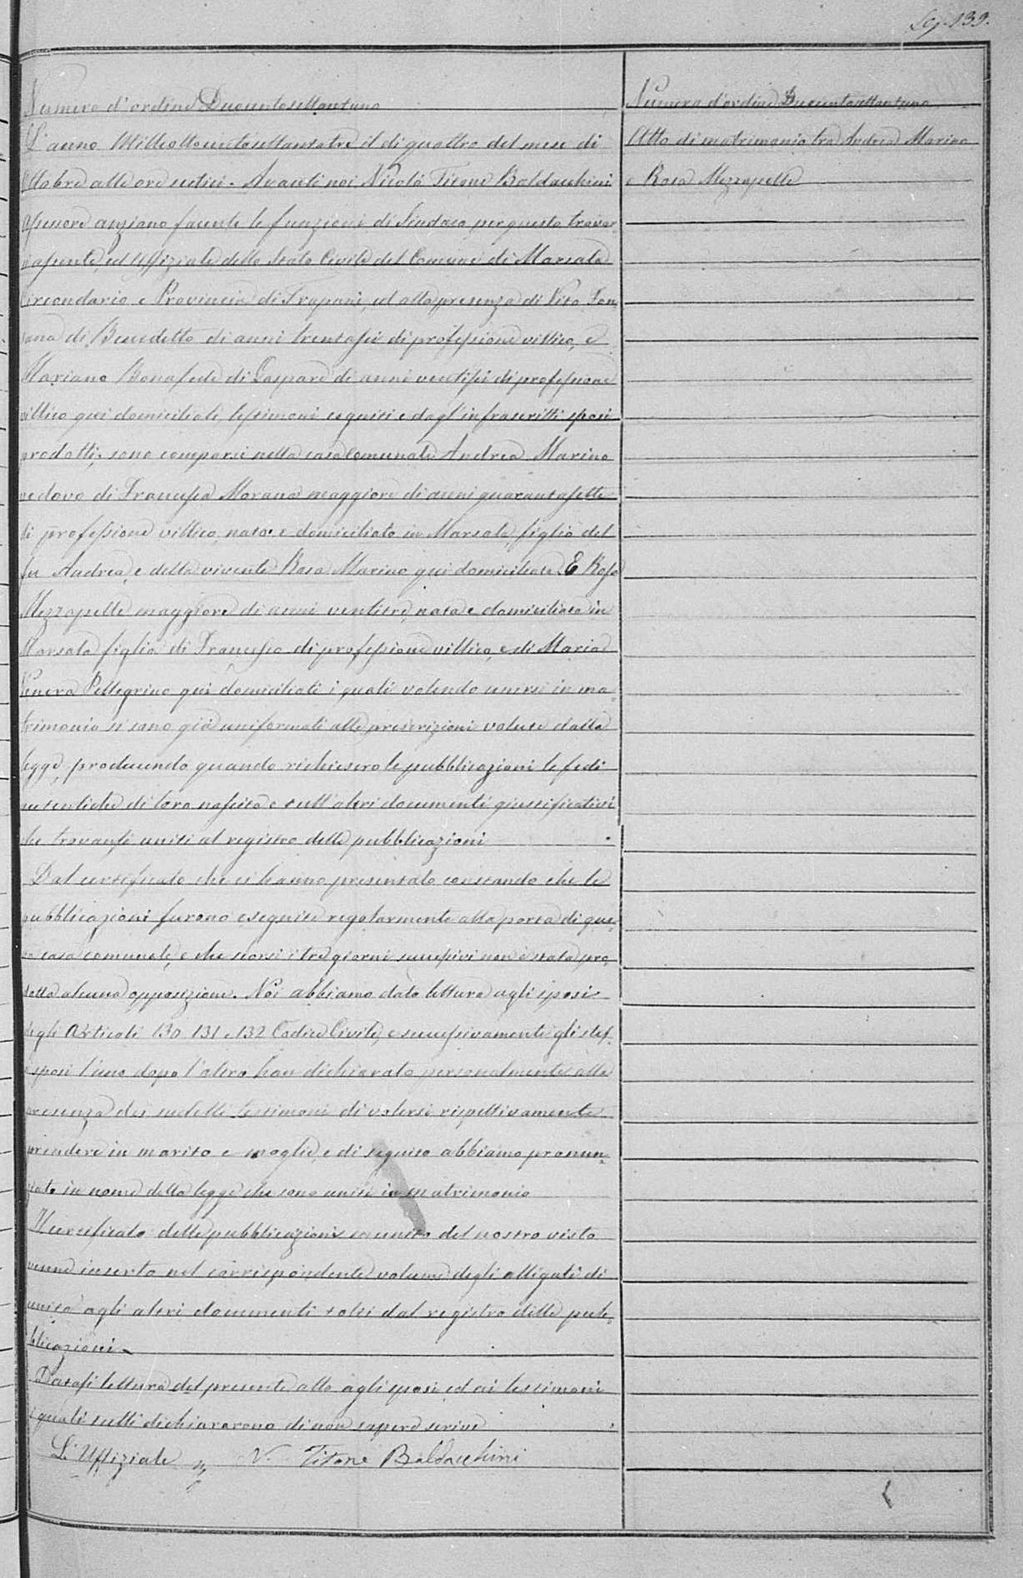 Seg. 139.
Numero d'ordine Duecentosettantuno
L'anno Milleottocentosettantatre il dì quattro del mese di
Ottobre alle ore sedici. Avanti noi Nicolò Titone Baldacchini
assessore anziano facente le funzione di Sindaco per questo trovar
assente ed Uffiziale dello Stato Civile del Comune di Marsala
Circondario e Provincia di Trapani, ed alla presenza di Vito Fon-
tana di Benedetto di anni trentasei di professione villico, e
Mariano Bonafede di Gaspare di anni ventisei di professione
villico qui domiciliati, testimoni eseguiti e dagl'infrascritti sposi
prodotti, sono comparsi nella casa Comunale Andrea Marino
vedovo di Francesca Morana maggiore di anni quarantasette
di professione villico, nato e domiciliato in Marsala figlio del
fu Andrea, e della vivente Rosa Marino qui domiciliata. E Rosa
Mezzapelle maggiore di anni ventitre, nata e domiciliata in
Marsala figlia di Francesco di professione villico, e di Maria
Venera Pellegrino qui domiciliati i quali volendo unirsi in ma-
trimonio si sono già uniformati alle prescrizioni volute dalla
legge, producendo quando richiesero le pubblicazioni le fedi
autentiche di loro nascita e tutt'altri documenti giustificativi
che trovansi uniti al registro delle pubblicazioni
Dal certificato che ci hanno presentato constando che le
pubblicazioni furono eseguite regolarmente alla porta di que-
sta casa comunale, e che scorsi i tre giorni successivi non è stata pro-
dotta alcuna opposizione. Noi abbiamo dato lettura agli sposi
degli Articoli 130 131 e 132 Codice Civile, e successivamente gli stes-
si sposi l'uno dopo l'altro han dichiarato personalmente alla
presenza dei sudetti testimoni di volersi rispettivamente
prendere in marito e moglie, e di seguito abbiamo pronun-
ziato in nome della legge che sono uniti in matrimonio
Il certificato delle pubblicazioni munito del nostro visto
venne inserto nel corrispondente volume degli alligati di
unita agli altri documenti tolti dal registro delle pub-
blicazioni.
Datasi lettura del presente atto agli sposi ed ai testimoni
i quali tutti dichiararono di non sapere scrivere
L'Uffiziale N. Titone Baldacchini
Numero d'ordine Duecentosettantuno
Atto di matrimonio tra Andrea Marino
e Rosa Mezzapelle